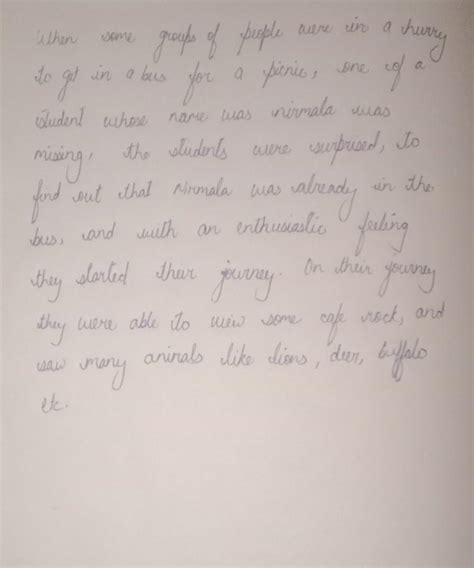 When some groups of people were in a hurry
to get in a bus for a picnic, one of a
student whose name was nirmala was
missing, the students were surprised, to
find out that nirmala was already in the
bus, and with an enthusiastic feeling
they started their journey. On their journey
they were able to view some cafe rock, and
saw many animals like lions, deer, buffalo
etc.